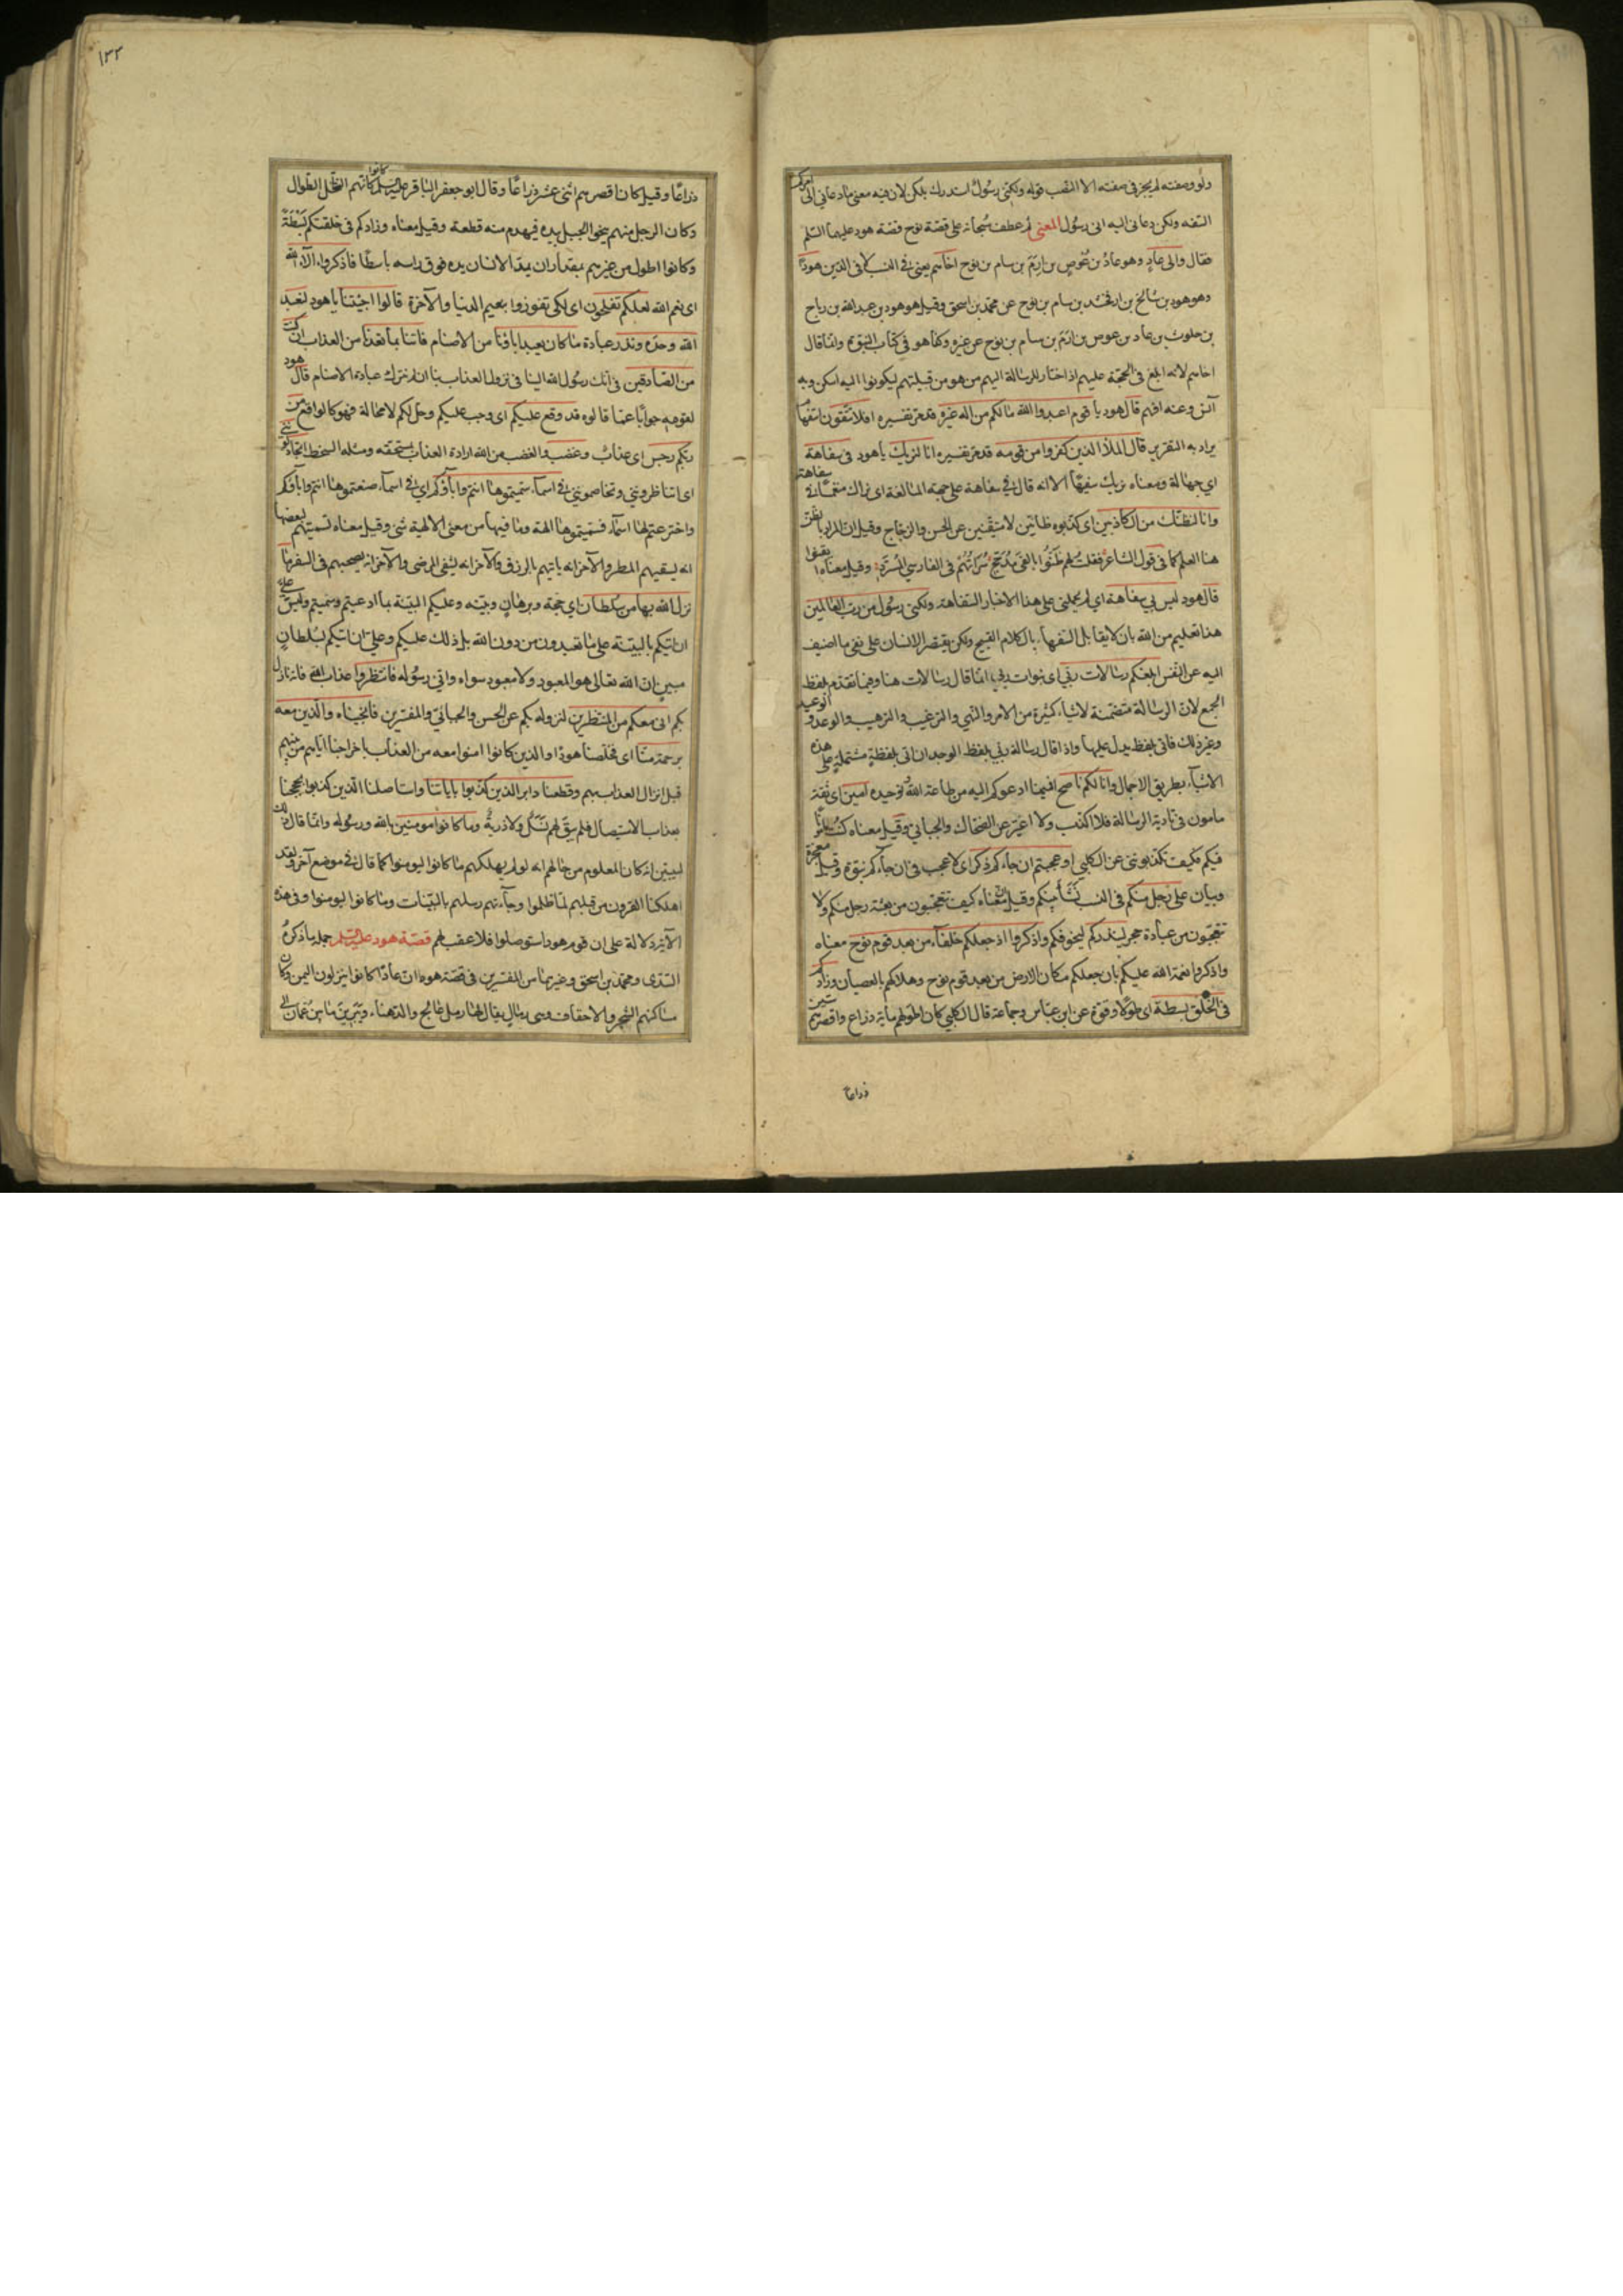 ولو وصفته لم يجز في صفته الا النصب قوله ولكني رسول استدرك بلكن لان فيه معنى ما دعاني الى امركم
السفه ولكن دعاني اليه اني رسول المعنى ثم عطف سبحانه على قصة نوح قصة هود عليهما السلم
فقال والى عاد وهو عاد بن عوص بن ارم بن سام بن نوح اخاهم يعني في النسب لا في الدين هودا
وهو هود بن شالخ بن ارفخشد بن سام بن نوح عن محمد بن اسحق وقيل هو هود بن عبد الله بن رباح
بن جلوث بن عاد بن عوص بن ارم بن سام بن نوح عن غيره وكذا هو في كتاب النبوة وانما قال
اخاهم لانه ابلغ في الحجة عليهم اذا اختار للرسالة اليهم من هو من قبيلتهم ليكونوا اليه اسكن وبه
آنس وعنه افهم قال هود يا قوم اعبدوا الله ما لكم من اله غيره قد مر تفسيره افلا تتقون استفهام
يراد به التقرير قال الملأ الذين كفروا من قومه قد مر تفسيره انا لنريك يا هود في سفاهة
اي جهالة ومعناه نريك سفيها الا انه قال في سفاهة على جهة المبالغة اي نراك منغمسا في سفاهة
وانا لنظنك من الكاذبين اي كذبوه ظانين لا متيقنين عن الحسن والزجاج وقيل ان المراد بالظن
هنا العلم كما في قول الشاعر فقلت لهم ظنوا بالفي مدجج سراتهم في الفارسي المسرد وقيل معناه ايقنوا
قال هود ليس بي سفاهة اي لم يحملني على هذا الاخبار السفاهة ولكني رسول من رب العالمين
هذا تعليم من الله بان لا يقابل السفهاء بالكلام القبيح ولكن يقتصر الانسان على نفي ما اضيف
اليه عن النفس ابلغكم رسالات ربي اي نبوات ربي انما قال رسالات هنا وفيما تقدم بلفظ
الجمع لان الرسالة متضمنة لاشياء كثيرة من الامر والنهي والترغيب والترهيب والوعد والوعيد
وغير ذلك فاتى بلفظ يدل عليها واذا قال رسالة ربي بلفظ الوحدان اتى بلفظة مشتملة على هذه
الاشياء بطريق الاجمال وانا لكم ناصح فيما ادعوكم اليه من طاعة الله وتوحيده امين اي ثقة
مامون في تادية الرسالة فلا اكذب ولا اغير عن الضحاك والجبائي وقيل معناه كنت مامونا
فيكم فكيف تكذبونني عن الكلبي اوعجبتم ان جاءكم ذكر اي لا عجب في ان جاءكم نبوة وقيل معجزة
وبيان على رجل منكم في النسب نشأ بينكم وقيل معناه كيف تتعجبون من بعثة رجل منكم ولا
تتعجبون من عبادة حجر لينذركم ليخوفكم واذكروا اذ جعلكم خلفاء من بعد قوم نوح معناه
واذكروا نعمة الله عليكم بان جعلكم سكان الارض من بعد قوم نوح وهلاكهم بالعصيان وزادكم
في الخلق بسطة اي طولا وقوة عن ابن عباس وجماعة قال الكلبي كان اطولهم مأية ذراع واقصرهم ستين
ذراعا
١٣٣
ذراعا وقيل كان اقصرهم اثني عشر ذراعا وقال ابو جعفر الباقر عليه السلم كانوا كانهم النخل الطوال
وكان الرجل منهم ينحو الجبل بيده فيهدم منه قطعة وقيل معناه وزادكم في خلقتكم بسطة
وكانوا اطول من غيرهم بمقدار ان يمد الانسان يده فوق راسه باسطا فاذكروا آلاء الله
اي نعم الله لعلكم تفلحون اي لكي تفوزوا بنعيم الدنيا والآخرة قالوا اجئتنا يا هود لنعبد
الله وحده ونذر عبادة ما كان يعبد اباؤنا من الاصنام فاتنا بما تعدنا من العذاب ان كنت
من الصادقين في انك رسول الله الينا في نزول العذاب بنا ان لم نترك عبادة الاصنام قال هود
لقومه جوابا عما قالوه قد وقع عليكم اي وجب عليكم وحل لكم لا محالة فهو كالواقع من
ربكم رجس اي عذاب وغضب والغضب من الله ارادة العذاب بمستحقه ومثله السخط اتجادلونني
اي اتناظرونني وتخاصمونني في اسماء سميتموها انتم وابآؤكم اي في اسماء صنعتموها انتم وابآؤكم
واخترعتم لها اسماء فسميتموها الهة وما فيها من معنى الالهية شئ وقيل معناه تسميتهم بعضها
انه يسقيهم المطر والآخر انه ياتيهم بالرزق والآخر انه يشفي المرضى والآخر انه يصحبهم في السفر ما
نزل الله بها من سلطان اي حجة وبرهان وبينه وعليكم البينة بما ادعيتم وسميتم وليس علي
ان اتيكم بالبينة على ما تعبدون من دون الله بل ذلك عليكم وعلي ان اتيكم بسلطان
مبين ان الله تعالى هو المعبود ولا معبود سواه واني رسوله فانتظروا عذاب الله فانه نازل
بكم اني معكم من المنتظرين لنزوله بكم عن الحسن والجبائي والمفسرين فانجيناه والذين معه
برحمة منا اي فخلصنا هودا والذين كانوا امنوا معه من العذاب باخراجنا اياهم من بينهم
قبل انزال العذاب بهم وقطعنا دابر الذين كذبوا باياتنا واستاصلنا الذين كذبوا بحججنا
بعذاب الاستيصال فلم يبق لهم نسل ولا ذرية وما كانوا مومنين بالله ورسوله وانما قال ذلك
ليبين انه كان المعلوم من حالهم انه لو لم يهلكهم ما كانوا ليومنوا كما قال في موضع آخر ولقد
اهلكنا القرون من قبلهم لما ظلموا وجآءتهم رسلهم بالبينات وما كانوا ليومنوا وفي هذه
الآية دلالة على ان قوم هود استوصلوا فلا عقب لهم قصة هود عليه السلم جملة ما ذكره
السدي ومحمد بن اسحق وغيرهما من المفسرين في قصة هود ان عادا كانوا ينزلون اليمن وكان
مساكنهم الشحر والاحقاف وهي رمال يقال لها رمل عالج والدهناء ويبرين ما بين عمان الى